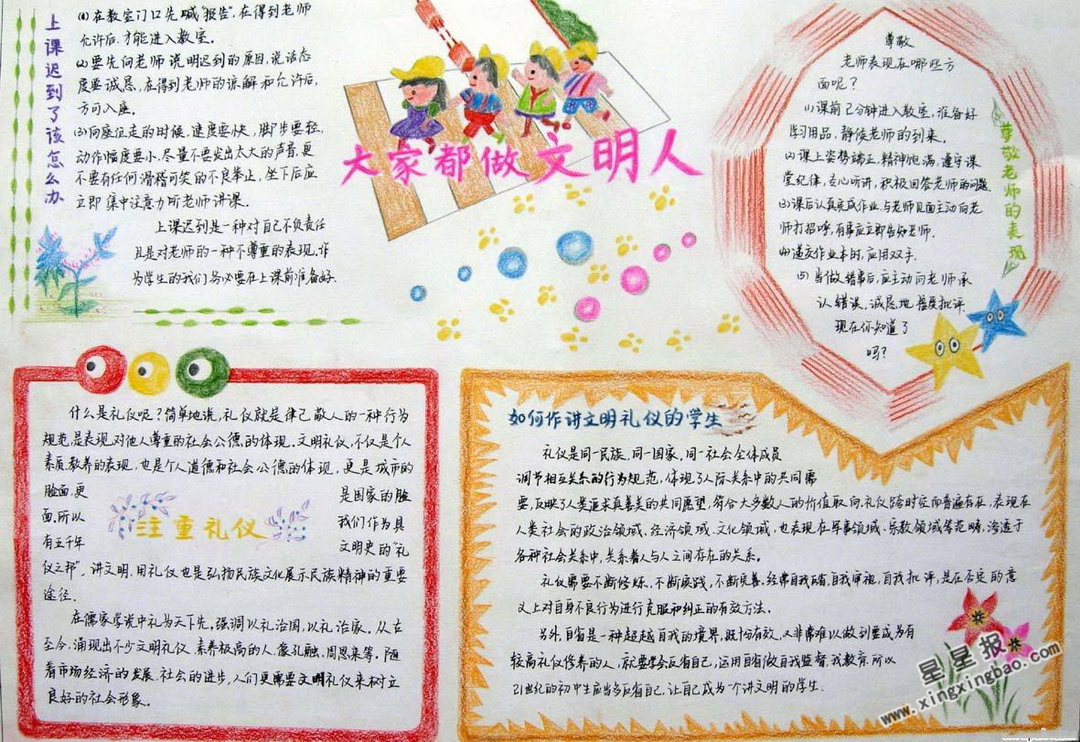 上课迟到了该怎么办
(1)在教室门口先喊“报告”,在得到老师
允许后,才能进入教室。
(2)要先向老师说明迟到的原因,说话态
度要诚恳,在得到老师的谅解和允许后,
方可入座。
(3)向座位走的时候,速度要快,脚步要轻,
动作幅度要小,尽量不要发出太大的声音,更
不要有任何滑稽可笑的不良举止,坐下后应
立即集中注意力听老师讲课。
上课迟到是一种对自己不负责任
且是对老师的一种不尊重的表现,作
为学生的我们务必要在上课前准备好.
大家都做文明人
尊敬
老师表现在哪些方
面呢?
(1)课前2分钟进入教室,准备好
学习用品,静候老师的到来。
(2)课上姿势端正,精神饱满,遵守课
堂纪律,专心听讲,积极回答老师的问题.
(3)课后认真完成作业,与老师见面主动向老
师打招呼,有事应立即告知老师.
(4)递交作业本时,应用双手.
(5)当做错事后,应主动向老师承
认错误,诚恳地接受批评.
现在你知道了
吗?
尊敬老师的表现
什么是礼仪呢?简单地说,礼仪就是律己敬人的一种行为
规范,是表现对他人尊重的社会公德的体现,文明礼仪,不仅是个人
素质,教养的表现,也是个人道德和社会公德的体现,更是城市的
脸面,更是国家的脸
面,所以我们作为具
有五千年文明史的“礼
注重礼仪
仪之邦”,讲文明,用礼仪也是弘扬民族文化展示民族精神的重要
途径.
在儒家学说中礼为天下先,强调以礼治国,以礼治家,从古
至今,涌现出不少文明礼仪,素养极高的人,像孔融,周恩来等,随
着市场经济的发展,社会的进步,人们更需要文明礼仪来树立
良好的社会形象。
如何作讲文明礼仪的学生
礼仪是同一民族,同一国家,同一社会全体成员
调节相互关系的行为规范,体现了人际关系中的共同需
要,反映了人类追求真善美的共同愿望,符合大多数人的价值取向,礼仪跨时空而普遍存在,表现在
人类社会的政治领域,经济领域,文化领域,也表现在军事领域,宗教领域等范畴,渗透于
各种社会关系中,关系着人与人之间存在的关系。
礼仪需要不断修炼,不断实践,不断完善,经常自我自省,自我审视,自我批评,是在否定的意
义上对自身不良行为进行克服和纠正的有效方法.
另外,自省是一种超越自我的境界,既十分有效,又非常难以做到要成为有
较高礼仪修养的人,就要学会反省自己,运用自省做自我监督,我教育.所以
21世纪的初中生应当多反省自己,让自己成为一个讲文明的学生.
星星报
www.xingxingbao.com